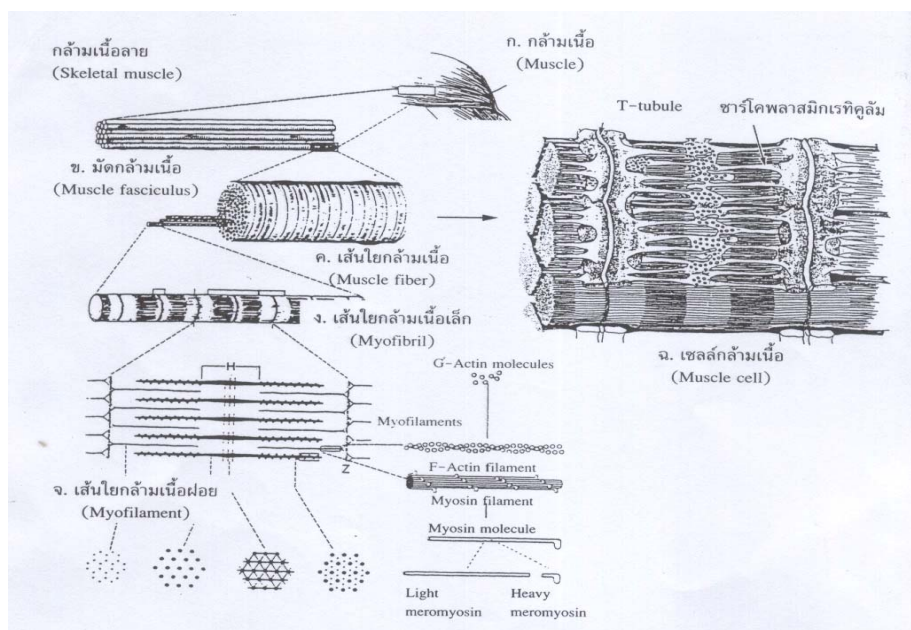 กล้ามเนื้อลาย
(Skeletal muscle)
ก. กล้ามเนื้อ
(Muscle)
T-tubule
ซาร์โคพลาสมิกเรทิคูลัม
ข. มัดกล้ามเนื้อ
(Muscle fasciculus)
ค. เส้นใยกล้ามเนื้อ
(Muscle fiber)
ง. เส้นใยกล้ามเนื้อเล็ก
(Myofibril)
ฉ. เซลล์กล้ามเนื้อ
(Muscle cell)
H
G-Actin molecules
Myofilaments
Z
F-Actin filament
Myosin filament
จ. เส้นใยกล้ามเนื้อฝอย
(Myofilament)
Myosin molecule
Light
meromyosin
Heavy
meromyosin